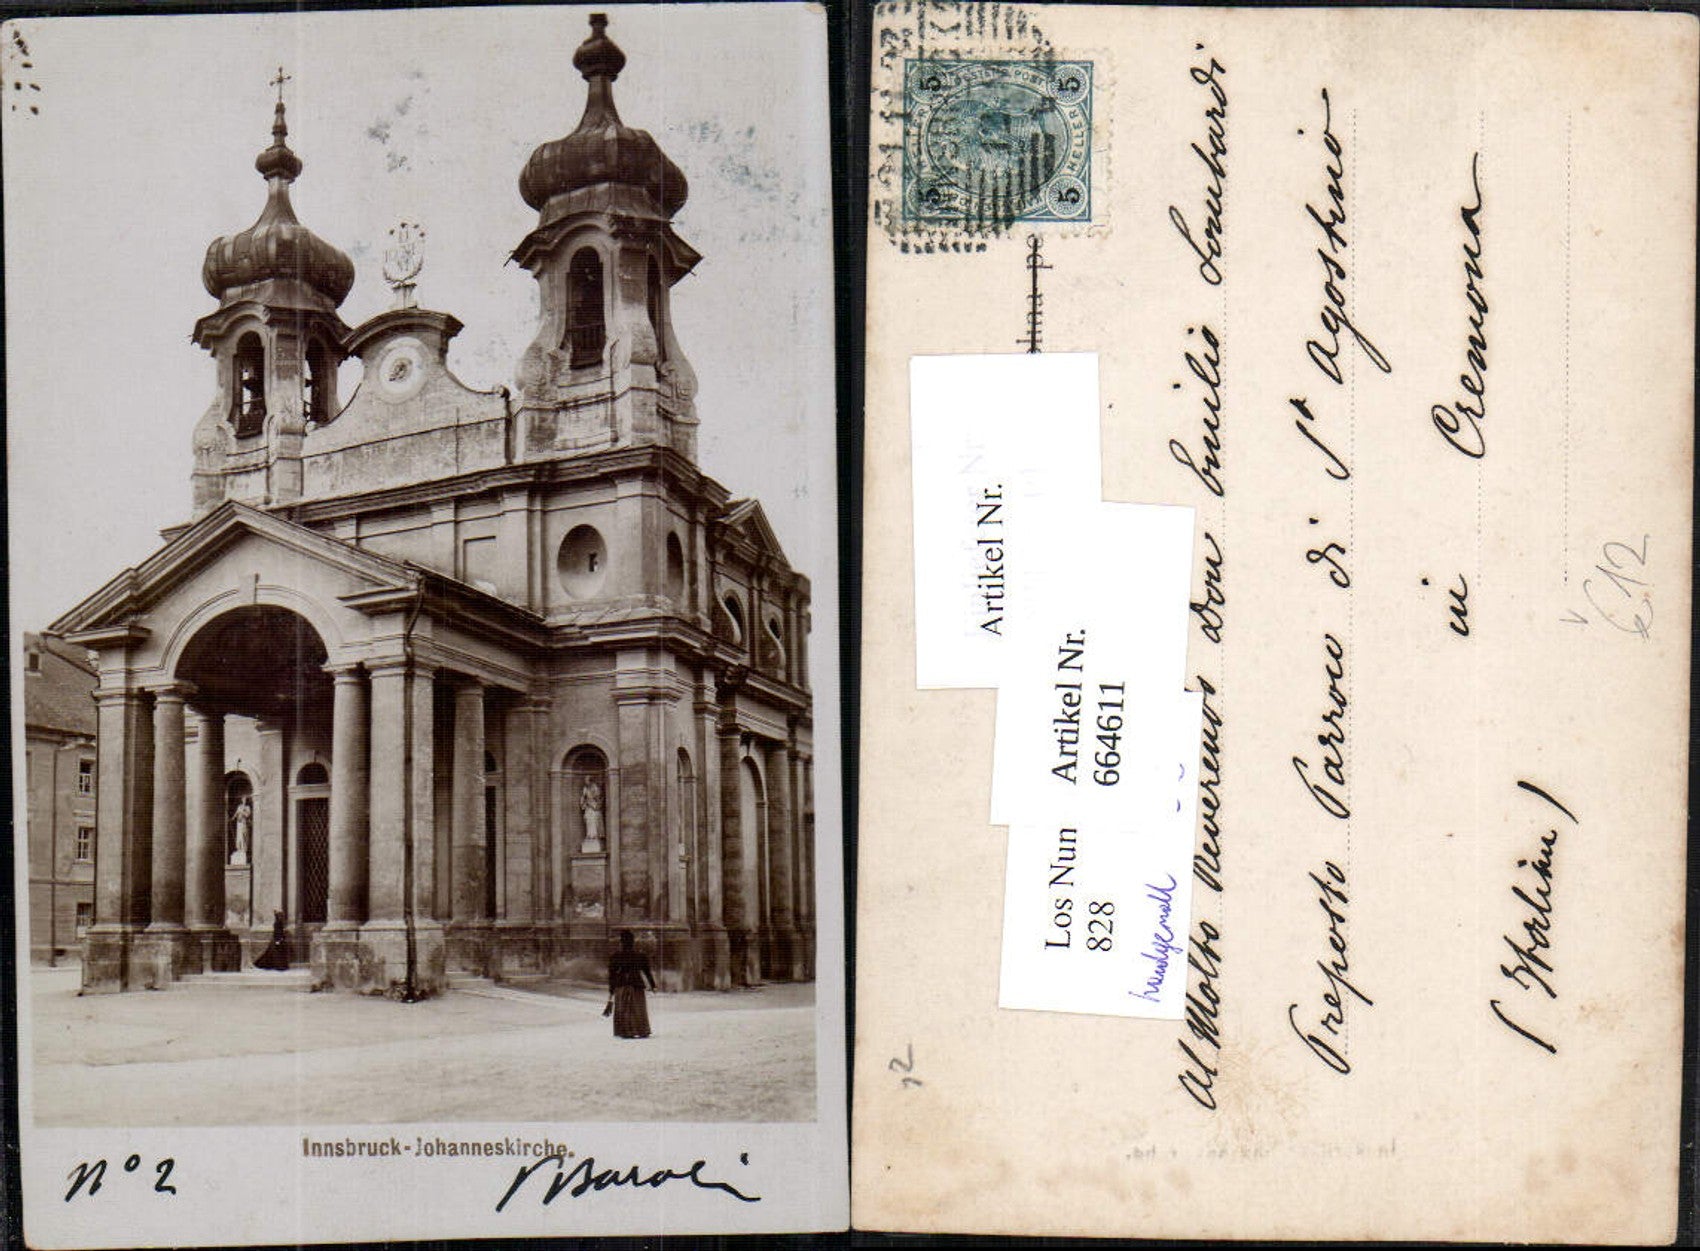 Innsbruck-Johanneskirche.
N° 2
5
5
HELLER
5
5
Artikel Nr.
Artikel Nr.
664611
Los Nun
828
Al Molto Reverendo Don Emilio Lombardi
Preposto Parroco di St Agostino
in Cremona
(Italien)
€12